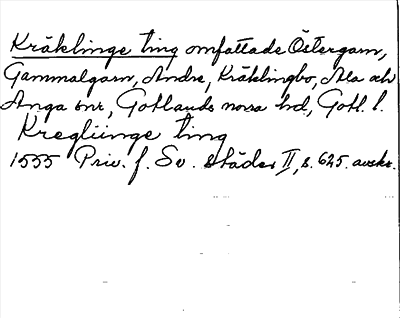 Kräklinge ting omfattade Östergarn,
Gammalgarn, Ardre, Kräklingbo, Ala och
Anga snr, Gotlands norra hd, Gotl. l.
Kreglünge ting
1555 Priv. f. Sv. städer II, s. 625. avskr.